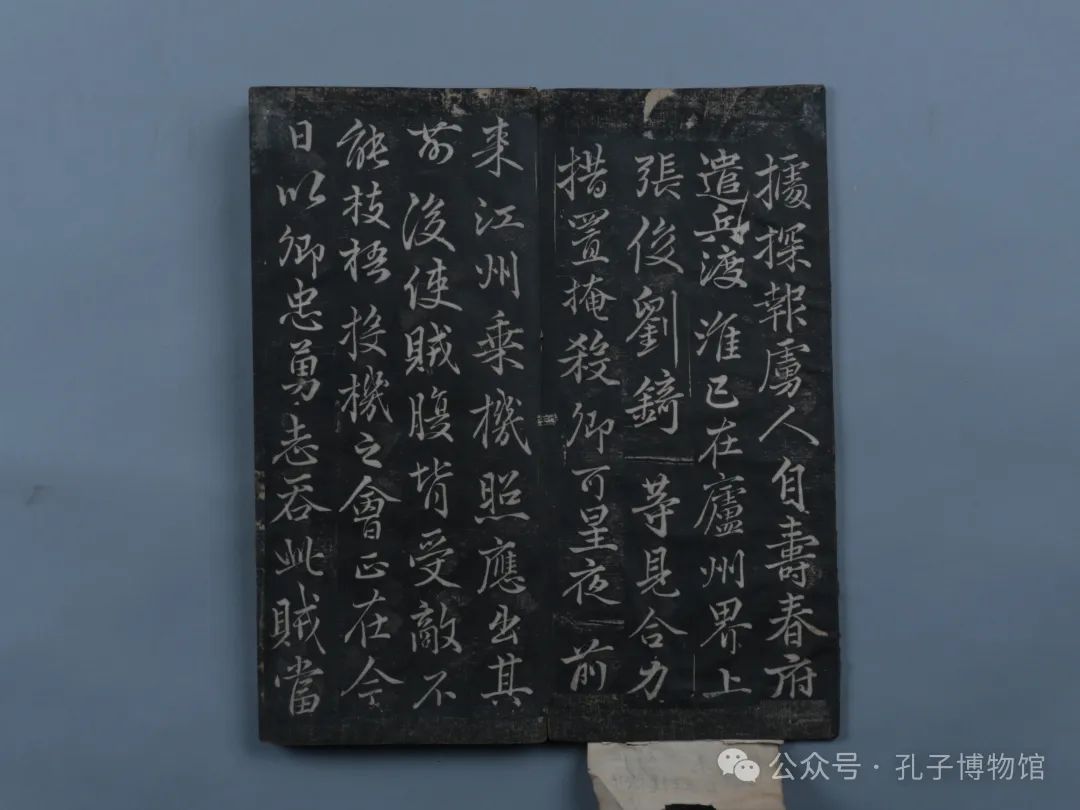 據探報虜人自壽春府
遣兵渡淮已在廬州界上
張俊劉錡等見合力
措置掩殺卿可星夜前
來江州乘機照應出其
前後使賊腹背受敵不
能枝梧投機之會正在今
日以卿忠勇志吞此賊當
公众号·孔子博物馆